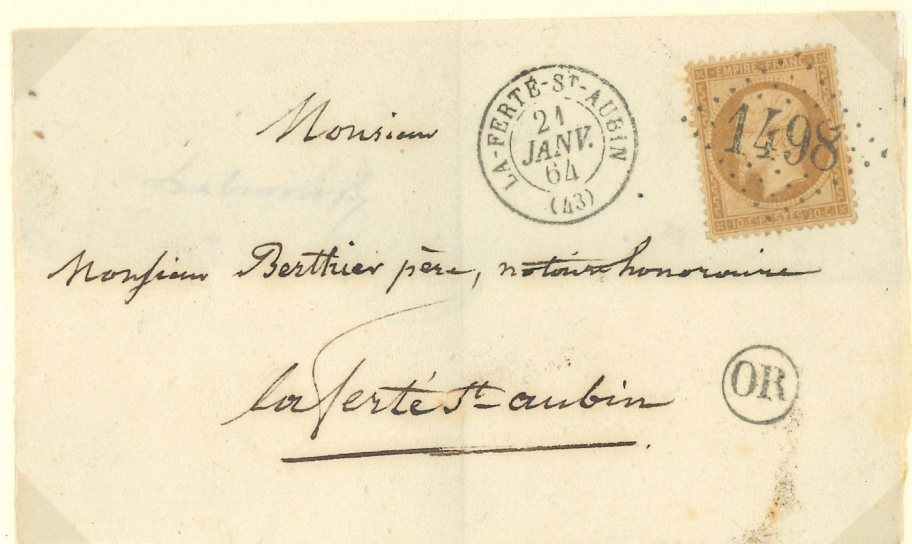 Monsieur
LA-FERTÉ-ST-AUBIN
21
JANV.
64
(43)
EMPIRE-FRANC
1498
10·C·POSTES·10·C
Monsieur Berthier père, notaire honoraire
la ferté St aubin
OR